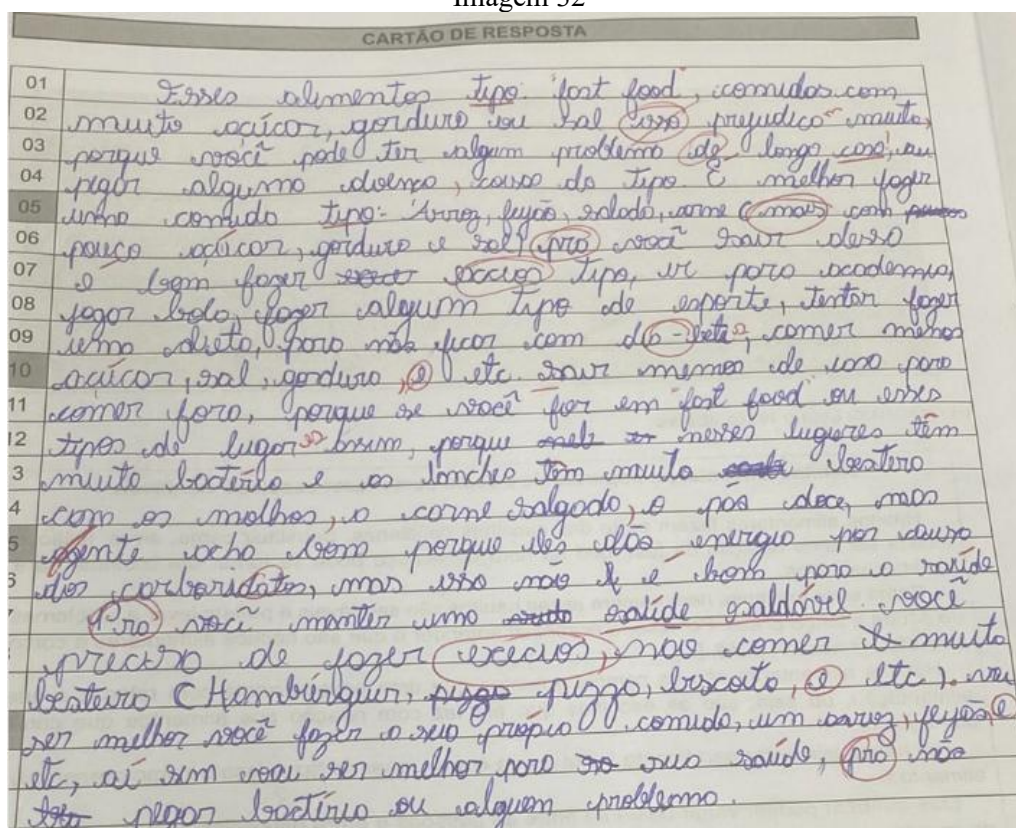 Imagem 32
CARTÃO DE RESPOSTA
01 Esses alimentos tipo: fast food, comidas com
02 muito açúcar, gordura ou sal isso prejudica muito,
03 porque você pode ter algum problema de longo caso, ou
04 pegar alguma doença, coisa do tipo. É melhor fazer
05 uma comida tipo: Arroz, feijão, salada, carne (mais com
06 pouco açúcar, gordura e sal) pro você sair desso
07 e bom fazer execios tipo, ir para academia,
08 jogar bola, fazer algum tipo de esporte, tentar fazer
09 uma dieta, para não ficar com dia-beta, comer menos
10 açúcar, sal, gordura, e etc. sair menos de casa para
11 comer fora, porque se você for em fast food ou esses
12 tipos de lugar assim, porque nesses lugares têm
3 muita bactéria e os lanches têm muita besteira
4 com os molhos, a carne salgada, o pão doce, mas
5 agente acha bom porque eles dão energia por causa
6 dos carboridatos, mas isso não é bom para a saúde
Pro você manter uma saúde saldável você
precisa de fazer execios, não comer muita
besteira (Hambúrguer, pizza, biscoito, e etc). vai
ser melhor você fazer a sua própia comida, um arroz, feijão, e
etc, aí sim vai ser melhor para sua saúde, pro não
pegar bactéria ou alguem problema.